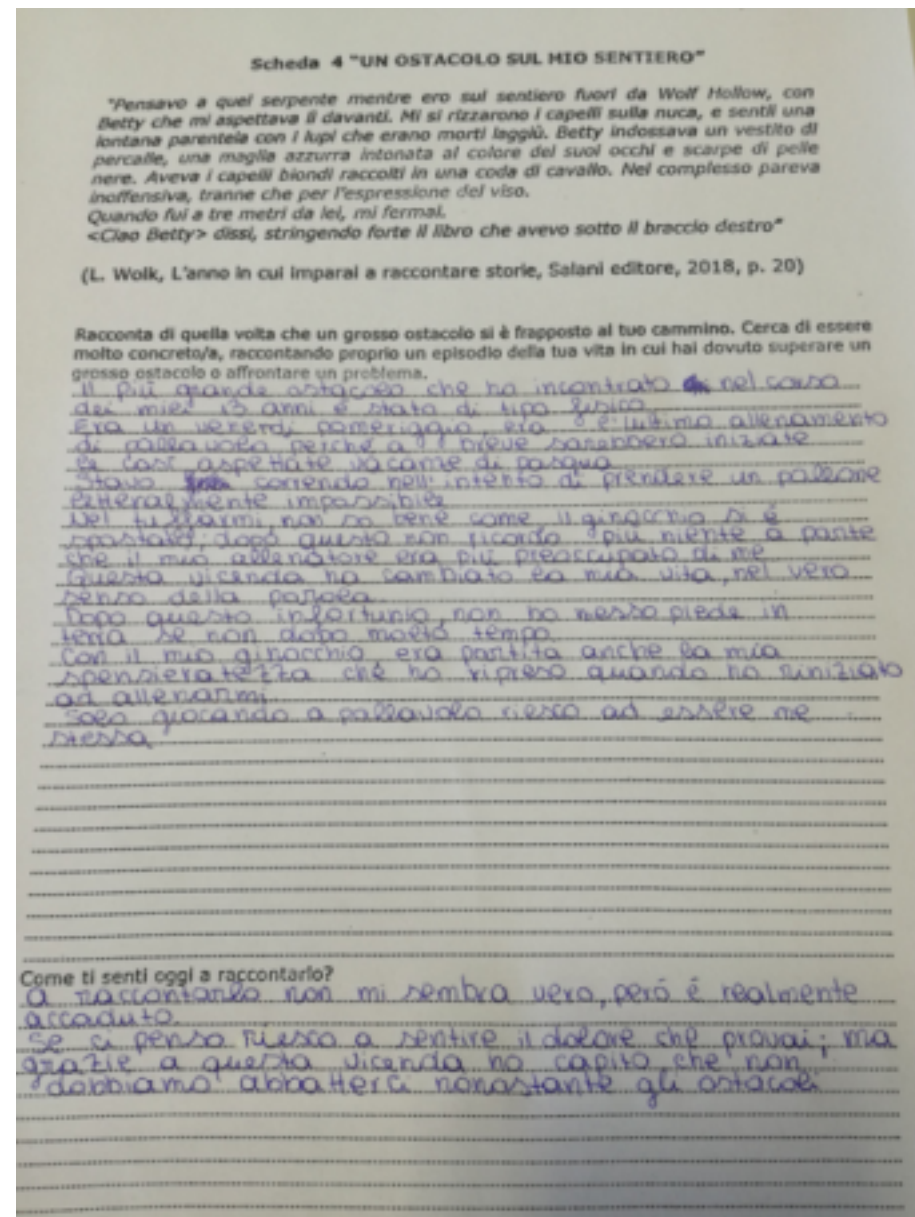 Scheda 4 "UN OSTACOLO SUL MIO SENTIERO"
"Pensavo a quel serpente mentre ero sul sentiero fuori da Wolf Hollow, con
Betty che mi aspettava lì davanti. Mi si rizzarono i capelli sulla nuca, e sentii una
lontana parentela con i lupi che erano morti laggiù. Betty indossava un vestito di
percalle, una maglia azzurra intonata al colore dei suoi occhi e scarpe di pelle
nere. Aveva i capelli biondi raccolti in una coda di cavallo. Nel complesso pareva
inoffensiva, tranne che per l'espressione del viso.
Quando fui a tre metri da lei, mi fermai.
<Ciao Betty> dissi, stringendo forte il libro che avevo sotto il braccio destro"
(L. Wolk, L'anno in cui imparai a raccontare storie, Salani editore, 2018, p. 20)
Racconta di quella volta che un grosso ostacolo si è frapposto al tuo cammino. Cerca di essere
molto concreto/a, raccontando proprio un episodio della tua vita in cui hai dovuto superare un
grosso ostacolo o affrontare un problema.
Il più grande ostacolo che ho incontrato nel corso
dei miei 13 anni è stato di tipo fisico
Era un venerdì pomeriggio, era l'ultimo allenamento
di pallavolo perchè a breve sarebbero iniziate
le così aspettate vacanze di pasqua
Stavo correndo nell'intento di prendere un pallone
letteralmente impossibile
Nel tuffarmi, non so bene come il ginocchio si è
spostato; dopo questo non ricordo più niente a parte
che il mio allenatore era più preoccupato di me
Questa vicenda ha cambiato la mia vita, nel vero
senso della parola
Dopo questo infortunio, non ho messo piede in
terra se non dopo molto tempo
Con il mio ginocchio era partita anche la mia
spensieratezza che ho ripreso quando ho riniziato
ad allenarmi
Solo giocando a pallavolo riesco ad essere me
stessa
Come ti senti oggi a raccontarlo?
A raccontarlo non mi sembra vero, però è realmente
accaduto
Se ci penso riesco a sentire il dolore che provai; ma
grazie a questa vicenda ho capito che non
dobbiamo abbatterci nonostante gli ostacoli